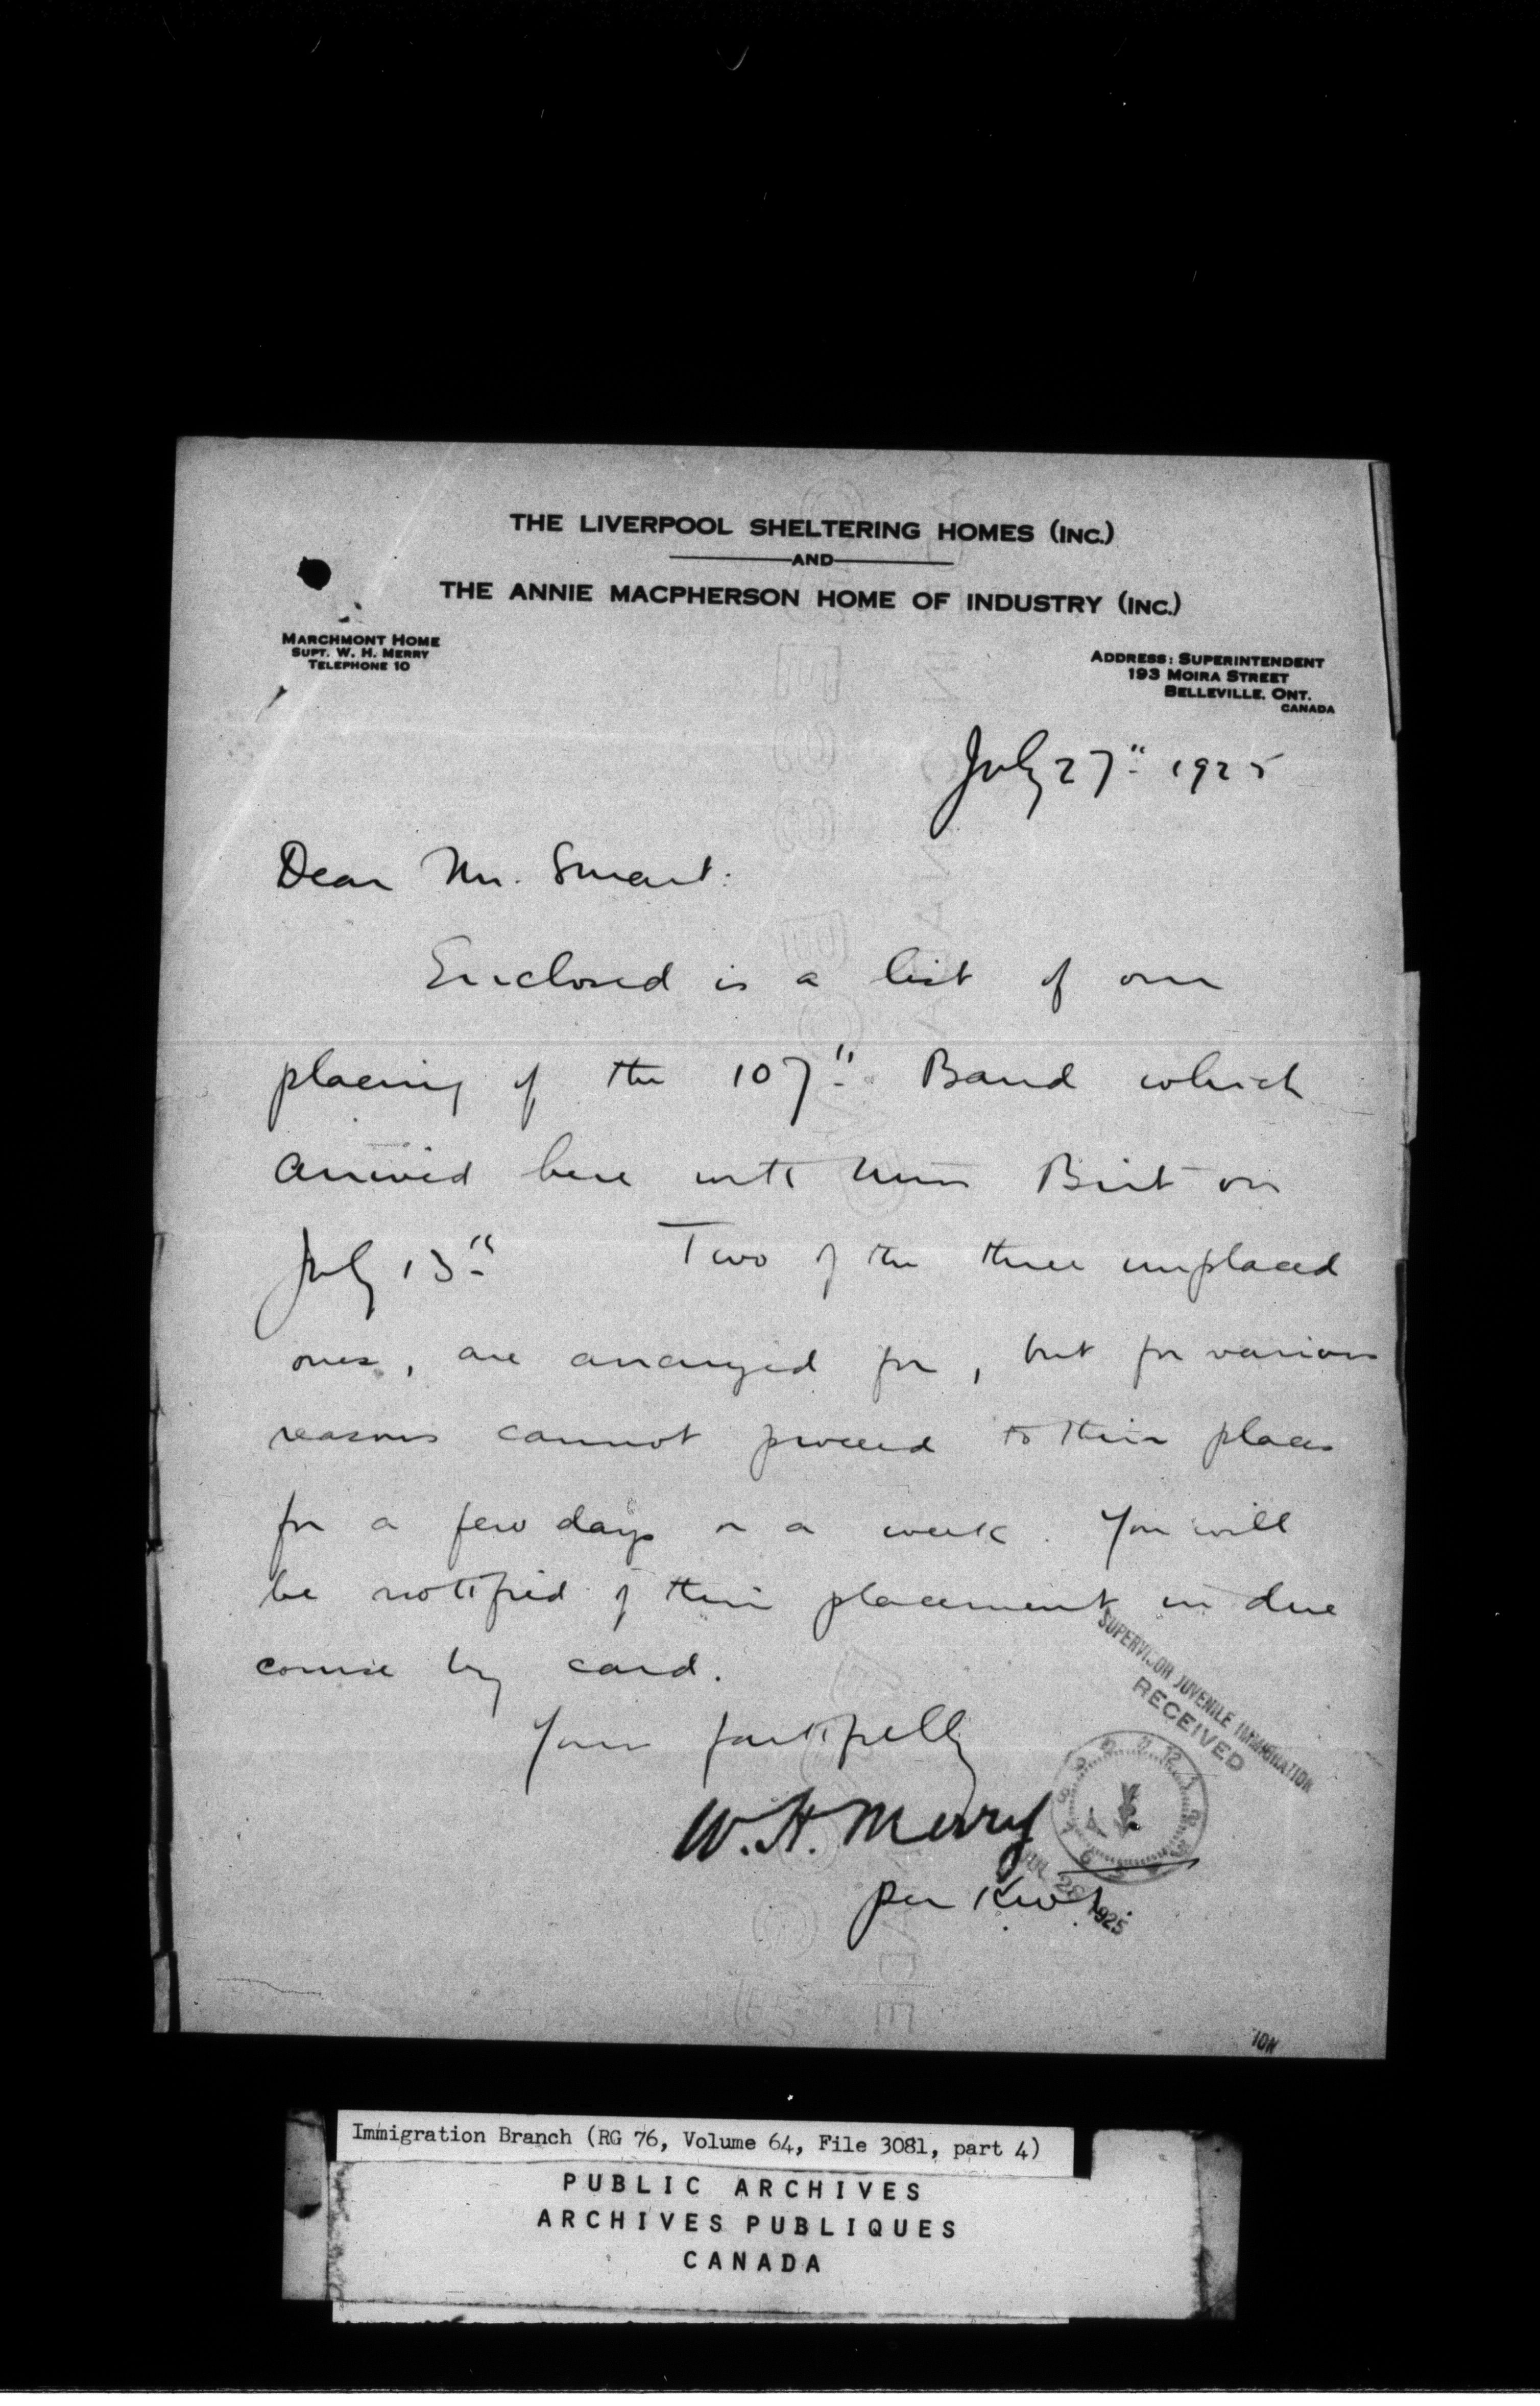 THE LIVERPOOL SHELTERING HOMES (INC.)
AND
THE ANNIE MACPHERSON HOME OF INDUSTRY (INC.)
MARCHMONT HOME
SUPT. W. H. MERRY
TELEPHONE 10
ADDRESS: SUPERINTENDENT
193 MOIRA STREET
BELLEVILLE, ONT.
CANADA
July 27" 1925
Dear Mr. Smart:
Enclosed is a list of our
placing of the 107" Band which
arrived here with Miss Birt on
July 13" Two of the three unplaced
ones, are arranged for, but for various
reasons cannot proceed to their places
for a few days or a week. You will
be notified of their placement in due
course by card.
Yours faithfully
W. H. Merry
per
SUPERVISOR JUVENILE IMMIGRATION
RECEIVED
JUL 28 1925
ION
Immigration Branch (RG 76, Volume 64, File 3081, part 4)
PUBLIC ARCHIVES
ARCHIVES PUBLIQUES
CANADA